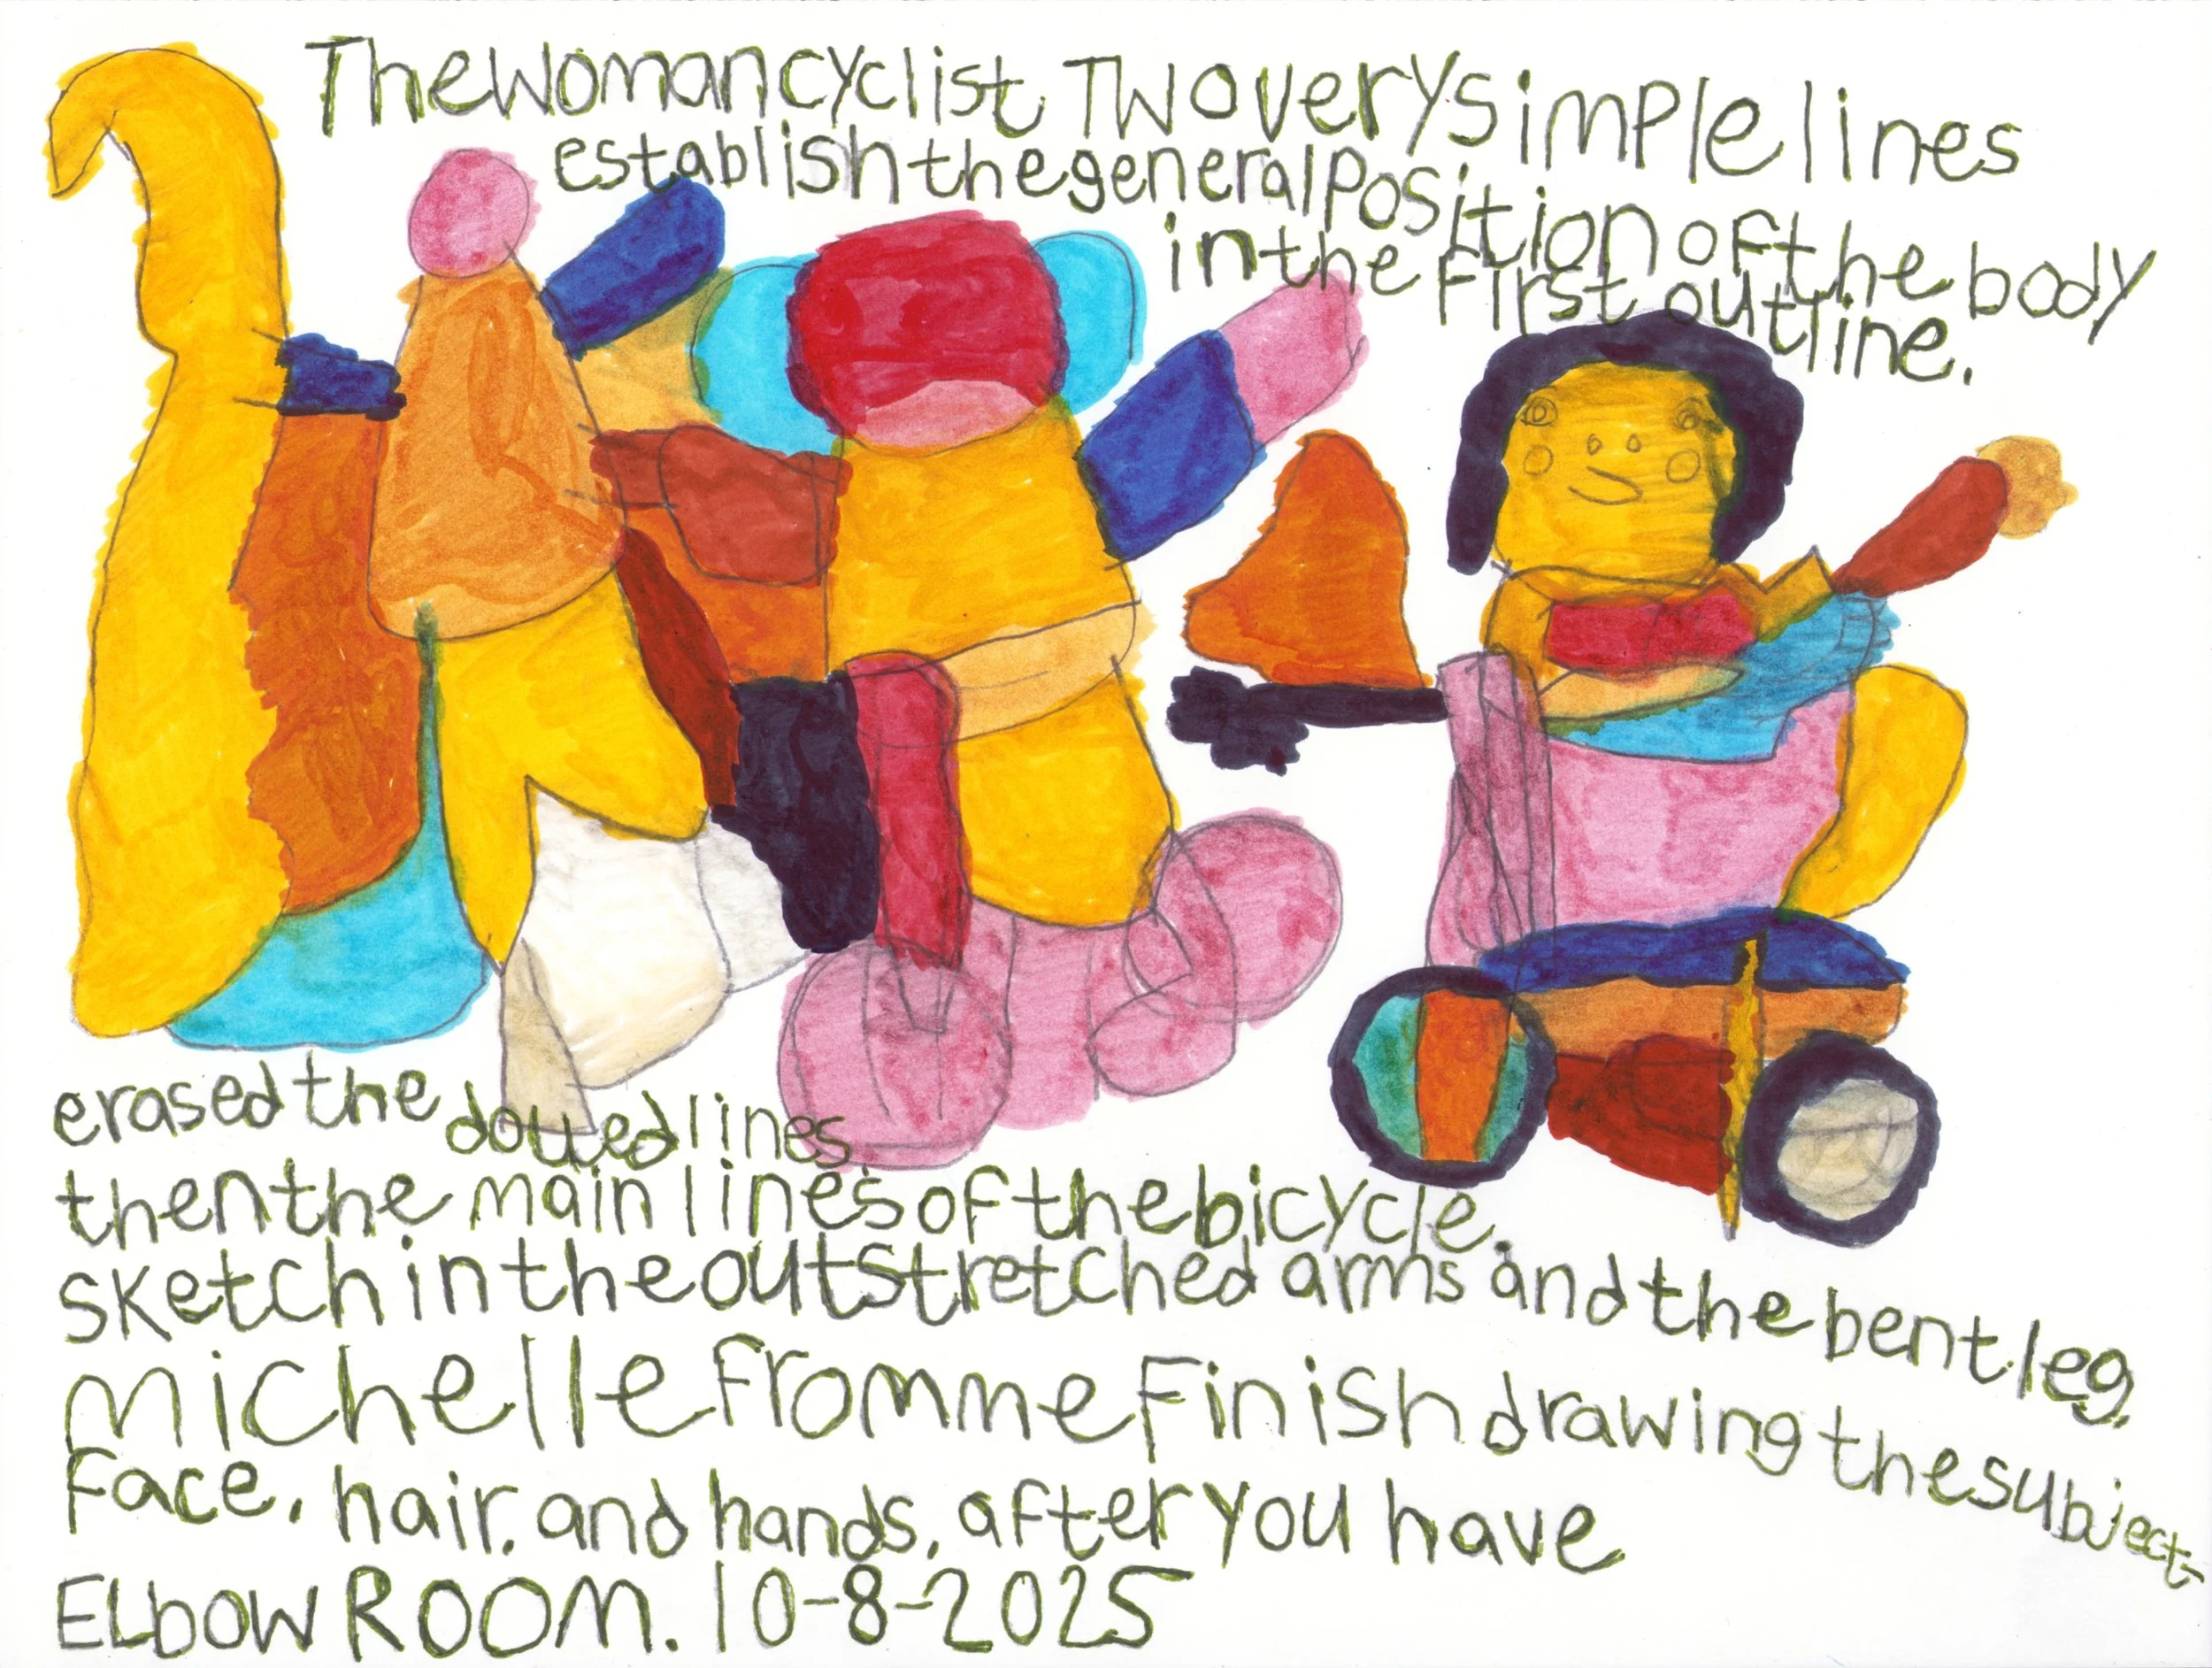 The woman cyclist Two very simple lines
establish the general position of the body
in the first outline.
erased the dowed lines
then the main lines of the bicycle.
sketch in the outstretched arms and the bent leg.
michelle Fromme Finish drawing the subject-
Face. hair. and hands. after you have
ELbow ROOM. 10-8-2025